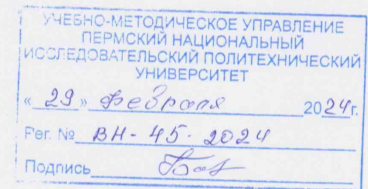 УЧЕБНО-МЕТОДИЧЕСКОЕ УПРАВЛЕНИЕ
ПЕРМСКИЙ НАЦИОНАЛЬНЫЙ
ИССЛЕДОВАТЕЛЬСКИЙ ПОЛИТЕХНИЧЕСКИЙ
УНИВЕРСИТЕТ
« 29 » февраля 2024г.
Рег. № ВН-45-2024
Подпись